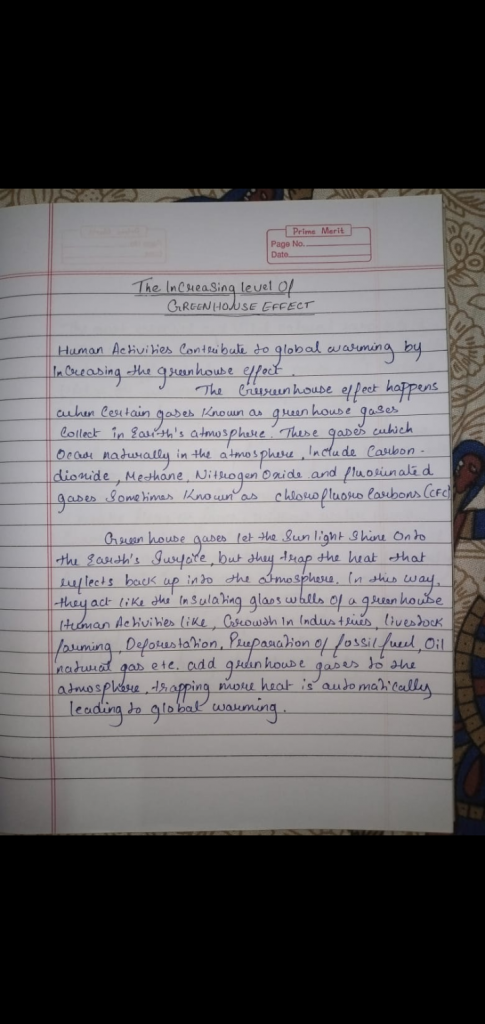 Prime Merit
Page No.
Date
The Increasing level Of
GREENHOUSE EFFECT
Human Activities Contribute to global warming by
Increasing the greenhouse effect.
The Greenhouse effect happens
when Certain gases Known as greenhouse gases
Collect in Earth's atmosphere. These gases which
Occur naturally in the atmosphere, Include Carbon-
dioxide, Methane, Nitrogen Oxide and fluorinated
gases Sometimes Known as chlorofluoro Carbons (CFC)
Green house gases let the Sun light Shine Onto
the Earth's Surface, but they trap the heat that
reflects back up into the atmosphere. In this way,
they act like the Insulating glass walls Of a greenhouse
Human Activities like, Growth In Industries, livestock
farming, Deforestation, Preparation of fossil fuel, Oil
natural gas etc. add greenhouse gases to the
atmosphere, trapping more heat is automatically
leading to global warming.